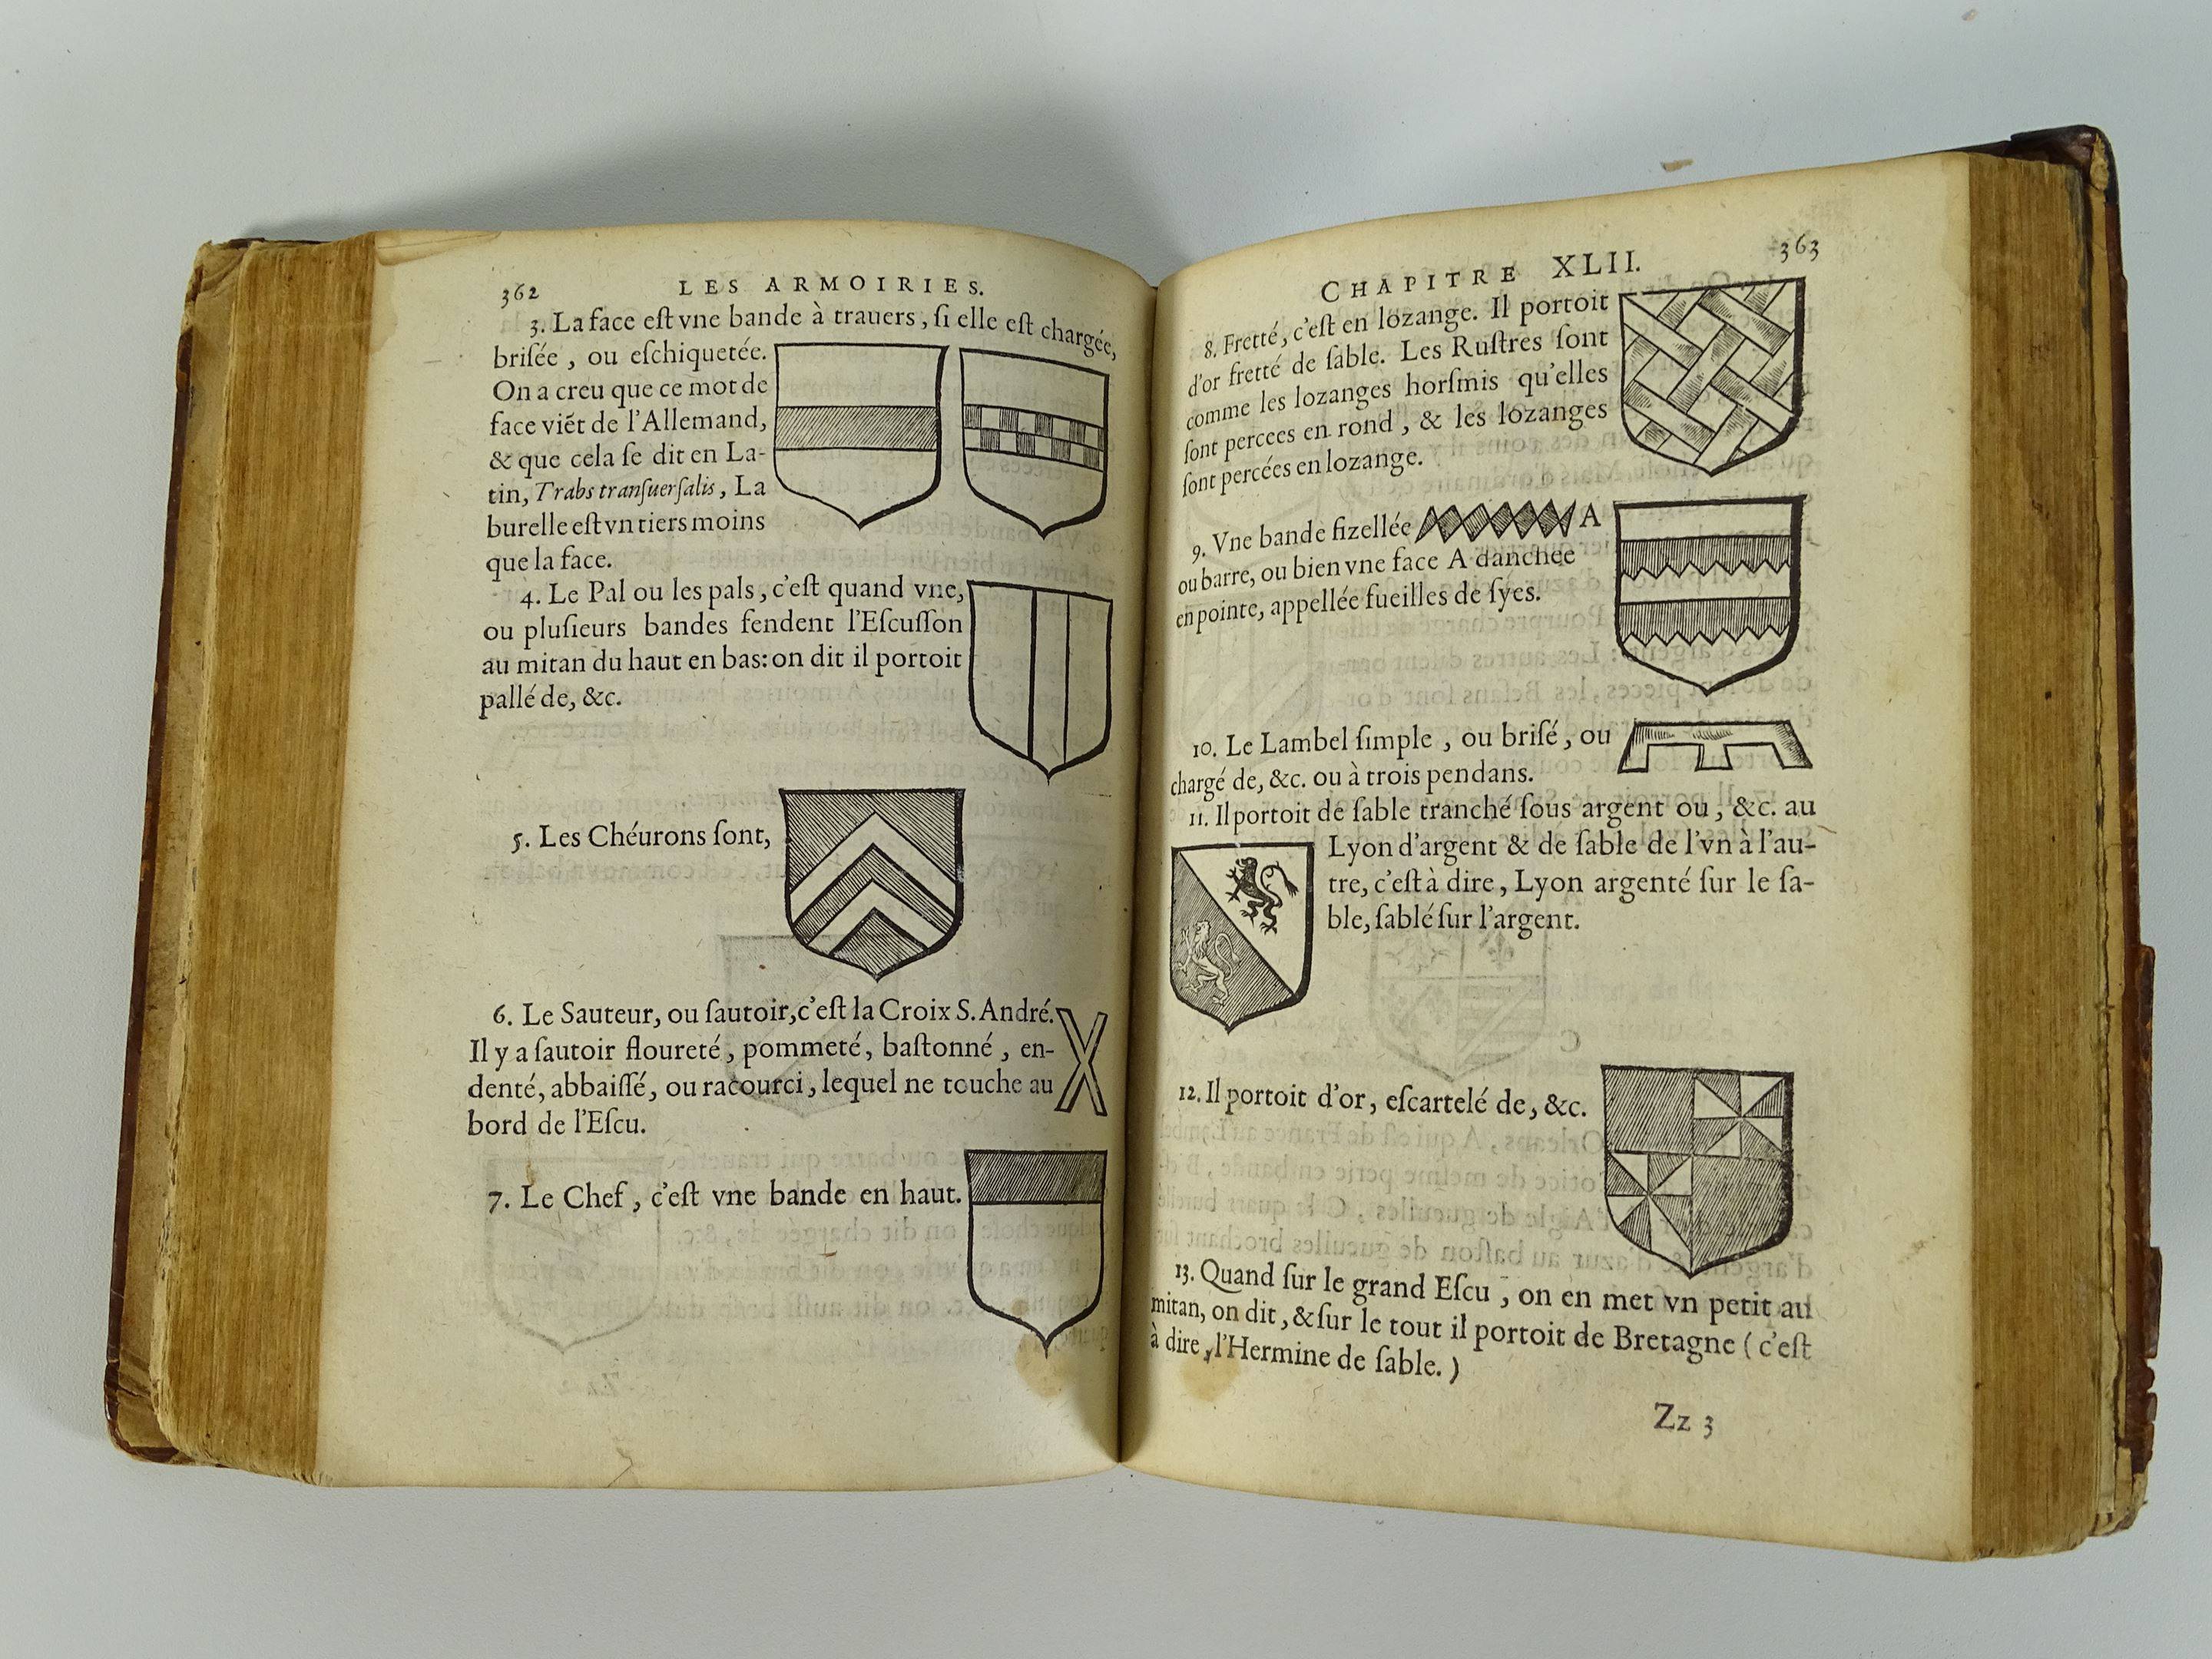 362 LES ARMOIRIES.
3. La face eſt vne bande à trauers, ſi elle eſt chargée,
briſée, ou eſchiquetée.
On a creu que ce mot de
face viẽt de l'Allemand,
& que cela ſe dit en La-
tin, Trabs tranſuerſalis, La
burelle eſt vn tiers moins
que la face.
4. Le Pal ou les pals, c'eſt quand vne,
ou pluſieurs bandes fendent l'Eſcuſſon
au mitan du haut en bas: on dit il portoit
pallé de, &c.
5. Les Chéurons ſont,
6. Le Sauteur, ou ſautoir, c'eſt la Croix S. André.
Il y a ſautoir floureté, pommeté, baſtonné, en-
denté, abbaiſſé, ou racourci, lequel ne touche au
bord de l'Eſcu.
7. Le Chef, c'eſt vne bande en haut.
CHAPITRE XLII. 363
8. Fretté, c'eſt en lozange. Il portoit
d'or fretté de ſable. Les Ruſtres ſont
comme les lozanges horſmis qu'elles
ſont percees en rond, & les lozanges
ſont percées en lozange.
9. Vne bande fizellée A
ou barre, ou bien vne face A danchée
en pointe, appellée fueilles de ſyes.
10. Le Lambel ſimple, ou briſé, ou
chargé de, &c. ou à trois pendans.
11. Il portoit de ſable tranché ſous argent ou, &c. au
Lyon d'argent & de ſable de l'vn à l'au-
tre, c'eſt à dire, Lyon argenté ſur le ſa-
ble, ſablé ſur l'argent.
12. Il portoit d'or, eſcartelé de, &c.
13. Quand ſur le grand Eſcu, on en met vn petit au
mitan, on dit, & ſur le tout il portoit de Bretagne (c'eſt
à dire, l'Hermine de ſable.)
Zz 3